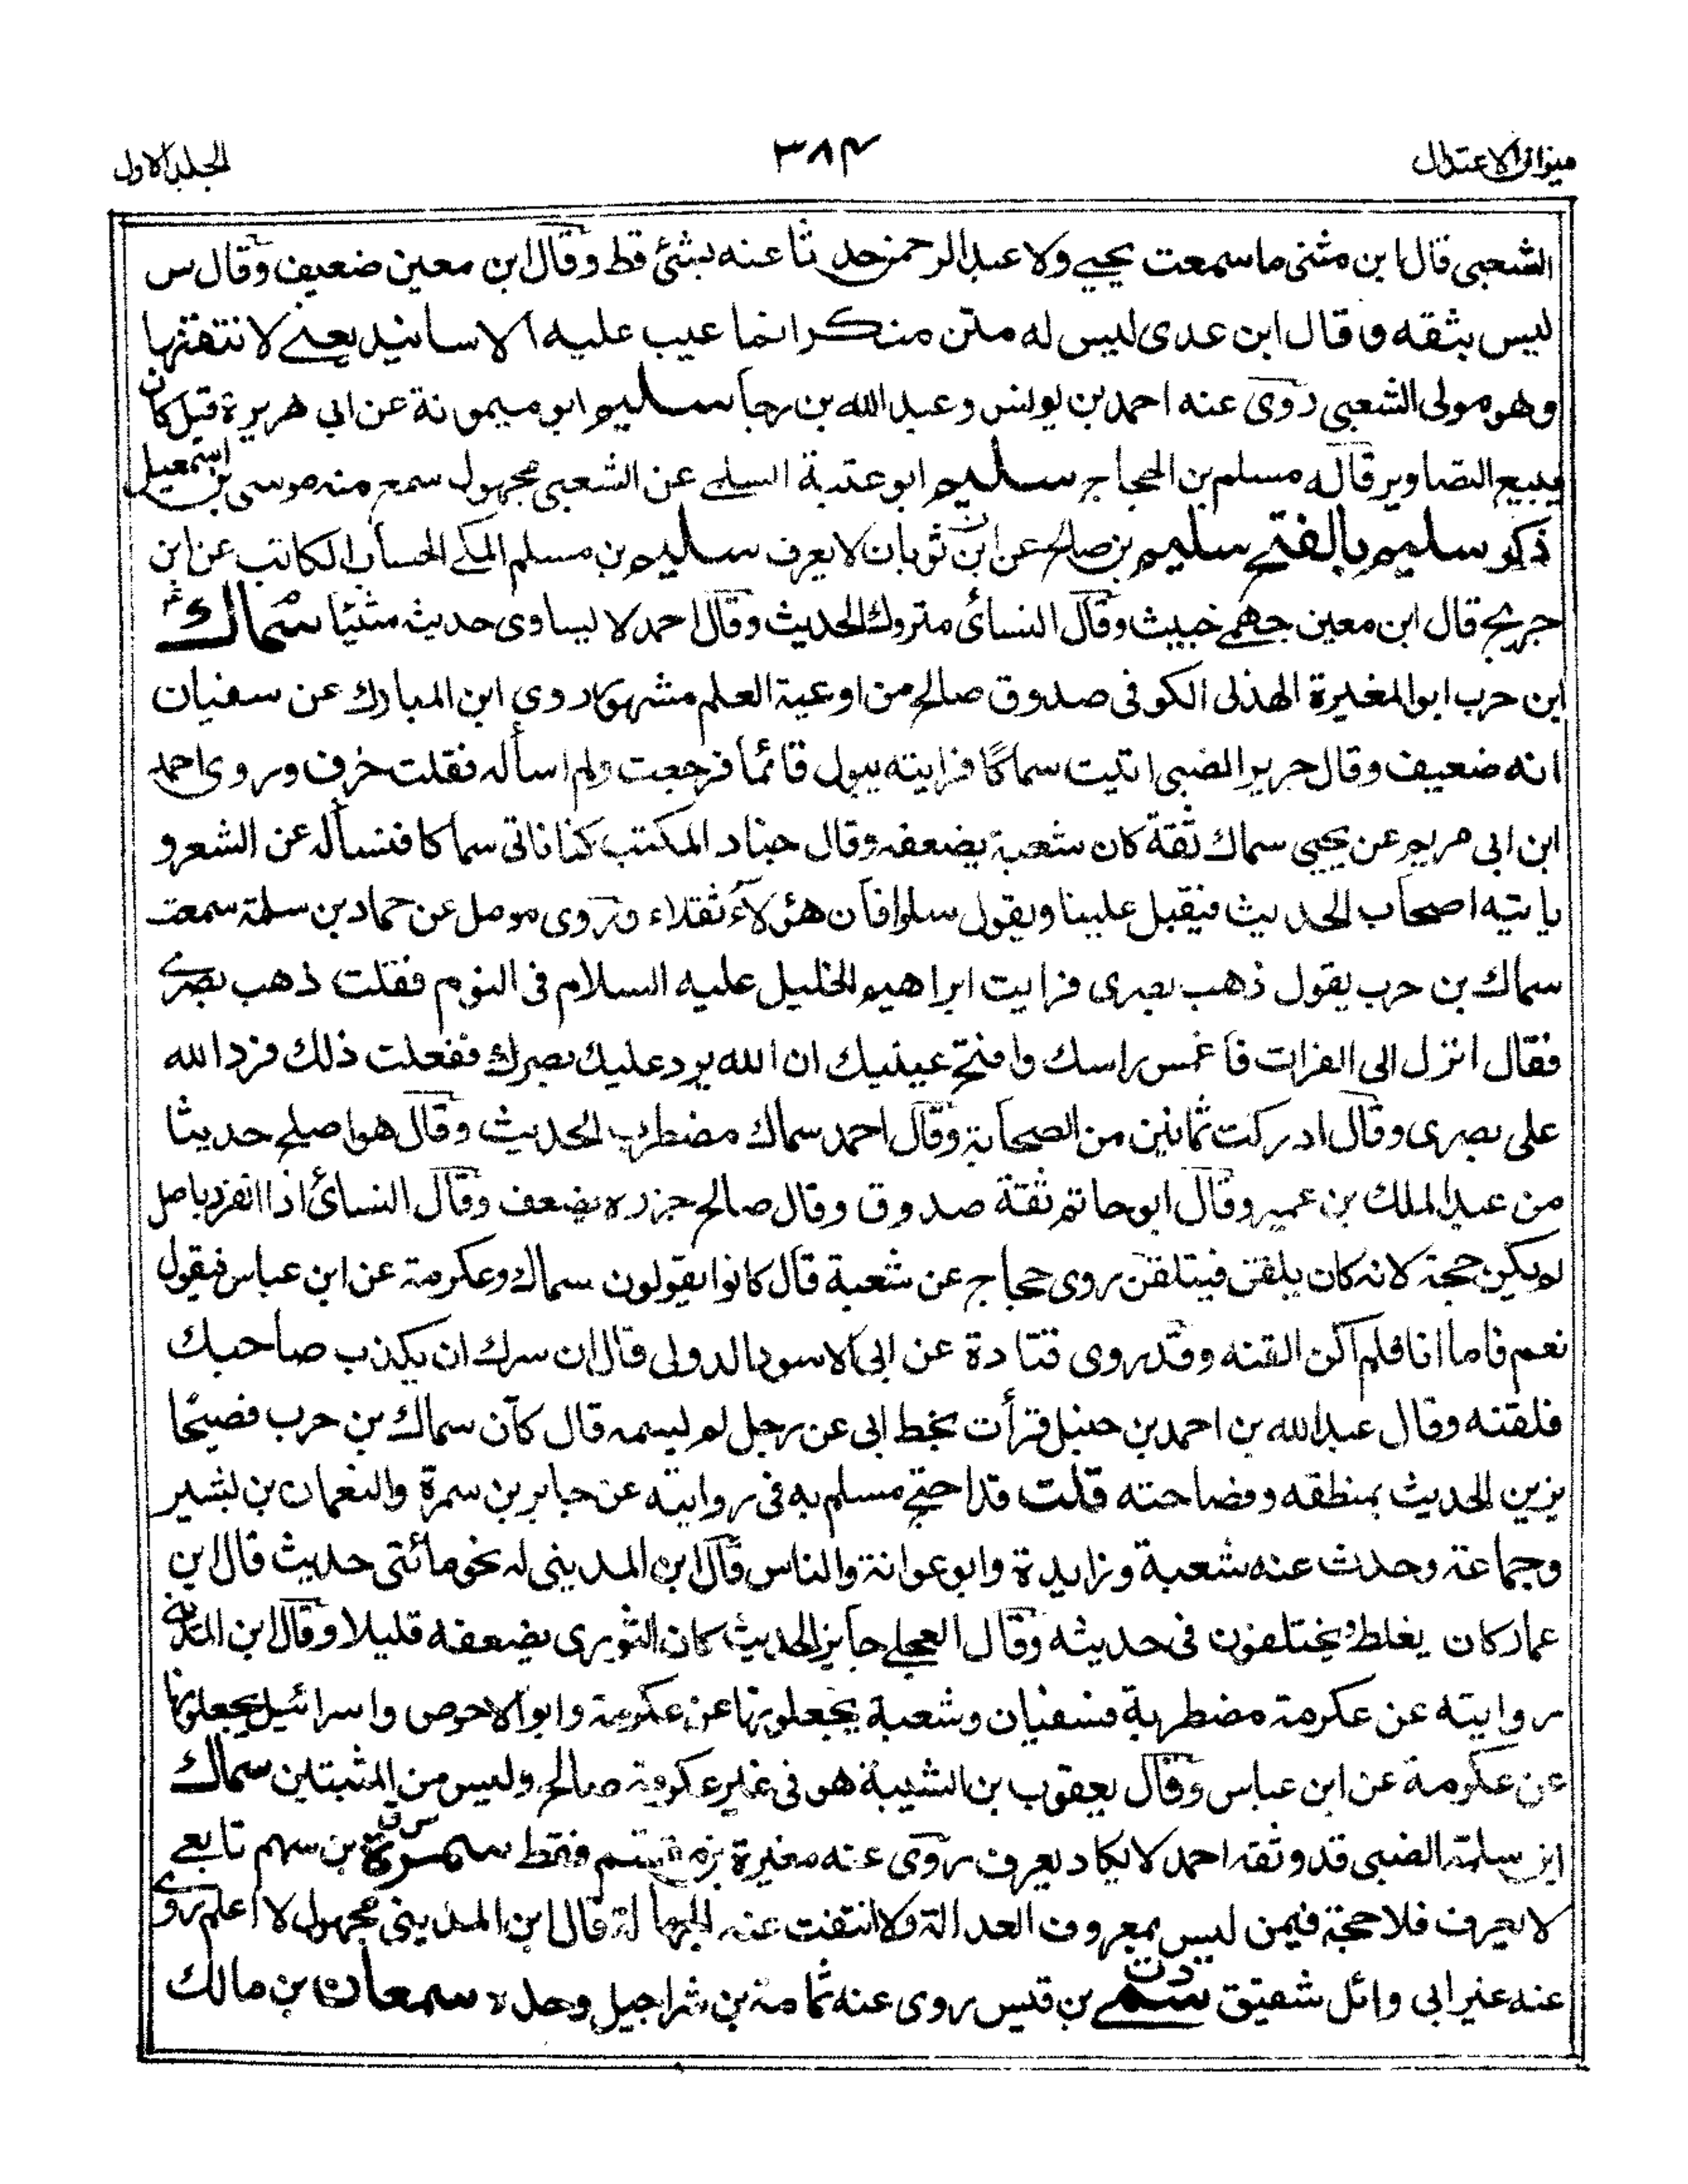 ميزان الاعتدال
٣٨٤
الجلد الاول
الشعبى قال ابن مثنى ما سمعت يحيى ولا عبد الرحمن حدثا عنه بشئ قط وقال ابن معين ضعيف وقال س
ليس بثقه وقال ابن عدى ليس له متن منكر انما عيب عليه الاسانيد يعنے لا نتقنها
وهو مولى الشعبى روى عنه احمد بن يونس وعبد الله بن رجا سليم ابو ميمونة عن ابى هريرة قيل كان
يبيع التصاوير قاله مسلم بن الحجاج سليم ابو عتبة السلمے عن الشعبى مجهول سمع منه موسى بن اسمعيل
ذكر سليم بالفتح سليم بن صالح عن ابن ثوبان لا يعرف سليم بن مسلم المكے الحساب الكاتب عن ابن
جريج قال ابن معين جهمے خبيث وقال النسائ متروك الحديث وقال احمد لا يساوى حديثه شيئا سماك
ابن حرب ابو المغيرة الهذلى الكوفى صدوق صالح من اوعية العلم مشهور روى ابن المبارك عن سفيان
انه ضعيف وقال جرير الضبى اتيت سماكا فرايته يبول قائما فرجعت ولم اسأله فقلت خرف وروى احمد
ابن ابى مريم عن يحيى سماك ثقة كان شعبة يضعفه وقال جناد المكتب كنا ناتى سماكا فنسأله عن الشعر و
ياتيه اصحاب الحديث فيقبل علينا ويقول سلوا فان هؤلاء ثقلاء وروى مومل عن حماد بن سلمة سمعت
سماك بن حرب يقول ذهب بصرى فرايت ابراهيم الخليل عليه السلام فى النوم فقلت ذهب بصرے
فقال انزل الى الفرات فاغمس راسك وافتح عينيك ان الله يرد عليك بصرك ففعلت ذلك فرد الله
على بصرى وقال ادركت ثمانين من الصحابة وقال احمد سماك مضطرب الحديث وقال هو اصلح حديثا
من عبد الملك بن عمير وقال ابو حاتم ثقة صدوق وقال صالح جزره يضعف وقال النسائ اذا انفرد باصل
لم يكن حجة لانه كان يلقن فيتلقن روى حجاج عن شعبة قال كانوا يقولون سماك وعكرمة عن ابن عباس فيقول
نعم فاما انا فلم اكن القنه وقد روى قتادة عن ابى الاسود الدولى قال ان سرك ان يكذب صاحبك
فلقنه وقال عبد الله بن احمد بن حنبل قرأت بخط ابى عن رجل لم يسمه قال كان سماك بن حرب فصيحا
يزين الحديث بمنطقه وفصاحته قلت قد احتج مسلم به فى روايته عن جابر بن سمرة والنعمان بن بشير
وجماعة وحدث عنه شعبة وزايدة وابو عوانة والناس قال ابن المدينى له نحو مائتى حديث قال ابن
عمار كان يغلط ويختلفون فى حديثه وقال العجلے جايز الحديث كان الثورى يضعفه قليلا وقال ابن المدينے
روايته عن عكرمة مضطربة فسفيان وشعبة يجعلونها عن عكرمة وابو الاحوص واسرائيل يجعلونها
عن عكرمة عن ابن عباس وقال يعقوب بن الشيبة هو فى غير عكرمة صالح وليس من المثبتين سماك
ابن سلمة الضبى قد وثقه احمد لا يكاد يعرف روى عنه مغيرة بن مقسم فقط سمرة بن سهم تابعے
لا يعرف فلا حجة فيمن ليس بمعروف العدالة ولا انتفت عنه الجهالة قال ابن المدينى مجهول لا اعلم روے
عنه غير ابى وائل شقيق سمے بن قيس روى عنه ثمامة بن شراجيل وحده سمعان بن مالك